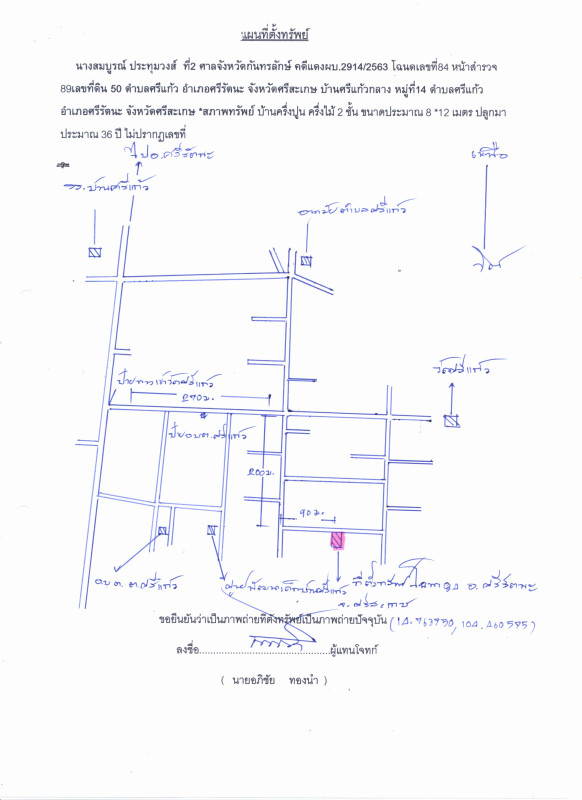 แผนที่ตั้งทรัพย์
นางสมบูรณ์ ประทุมวงส์ ที่2 ศาลจังหวัดกันทรลักษ์ คดีแดงผบ.2914/2563 โฉนดเลขที่84 หน้าสำรวจ
89เลขที่ดิน 50 ตำบลศรีแก้ว อำเภอศรีรัตนะ จังหวัดศรีสะเกษ บ้านศรีแก้วกลาง หมู่ที่14 ตำบลศรีแก้ว
อำเภอศรีรัตนะ จังหวัดศรีสะเกษ *สภาพทรัพย์ บ้านครึ่งปูน ครึ่งไม้ 2 ชั้น ขนาดประมาณ 8 *12 เมตร ปลูกมา
ประมาณ 36 ปี ไม่ปรากฏเลขที่
ไปอ.ศรีรัตนะ
เหนือ
รร.บ้านศรีแก้ว
อนามัยตำบลศรีแก้ว
วัดศรีแก้ว
ป้ายทางเข้าวัดศรีแก้ว
270ม.
ป้ายอบต.ศรีแก้ว
200ม.
90ม.
อบต.ต.ศรีแก้ว
ศูนย์พัฒนาเด็กบ้านศรีแก้ว
ที่ตั้งทรัพย์ อ.ศรีรัตนะ
จ.ศรีสะเกษ
ขอยืนยันว่าเป็นภาพถ่ายที่ตั้งทรัพย์เป็นภาพถ่ายปัจจุบัน (14.763950, 104.460595)
ลงชื่อ............................................ผู้แทนโจทก์
( นายอภิชัย ทองนำ )